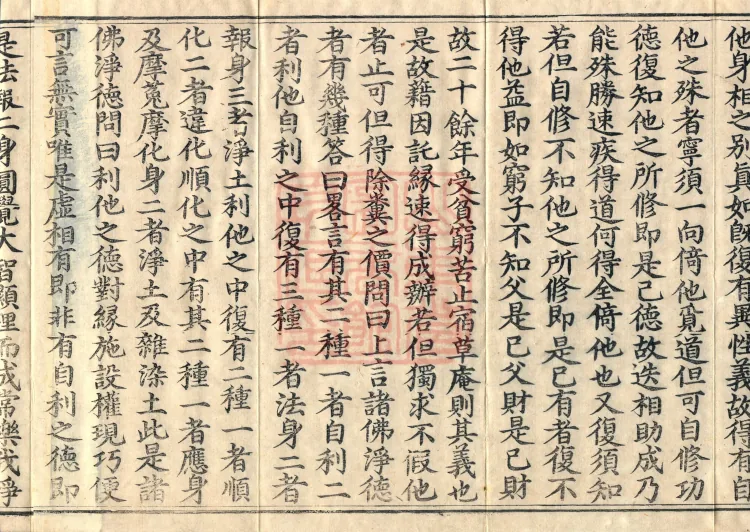 他身相之別真如旣復有異性義故得有自
他之殊者寧須一向倚他覓道但可自修功
德復知他之所修即是己德故迭相助成乃
能殊勝速疾得道何得全倚他也又復須知
若但自修不知他之所修即是已有者復不
得他益即如窮子不知父是已父財是已財
故二十餘年受貧窮苦止宿草庵則其義也
是故藉因託緣速得成辦若但獨求不假他
者止可但得除糞之價問曰上言諸佛淨德
者有幾種答曰畧言有其二種一者自利二
者利他自利之中復有三種一者法身二者
報身三者淨土利他之中復有二種一者順
化二者違化順化之中有其二種一者應身
及摩菟摩化身二者淨土及雜染土此是諸
佛淨德問曰利他之德對緣施設權現巧便
可言無實唯是虛相有即非有自利之德即
是法報二身圓覺大智顯理而成常樂我淨